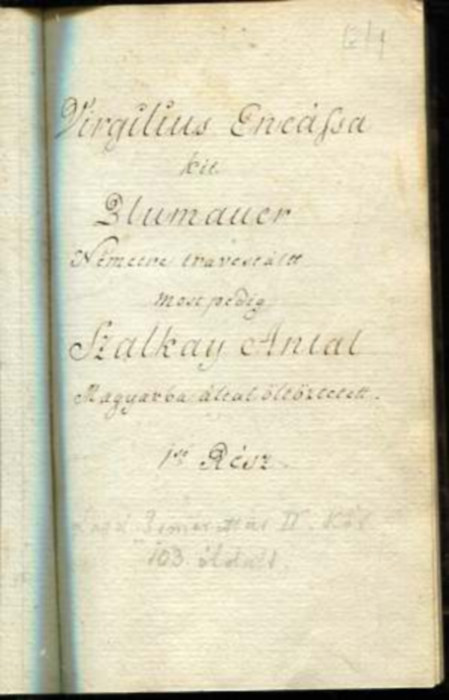 Virgilius Eneáſsa
kit
Blumauer
Németre travestált
most pedig
Szalkay Antal
Magyarba által öltöztetett.
1ső Rész
II. Köt
103. oldalt.